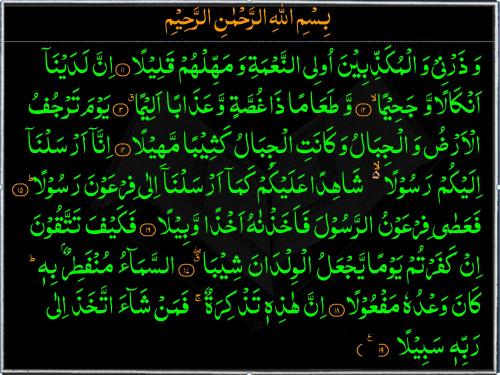 بِسْمِ اللهِ الرَّحْمٰنِ الرَّحِيْمِ
وَ ذَرْنِىْ وَ الْمُكَذِّبِيْنَ اُولِى النَّعْمَةِ وَ مَهِّلْهُمْ قَلِيْلًا ۝۱۱ اِنَّ لَدَيْنَاۤ
اَنْكَالًا وَّ جَحِيْمًا ۙ۝۱۲ وَّ طَعَامًا ذَا غُصَّةٍ وَّ عَذَابًا اَلِيْمًا ۗ۝۳ يَوْمَ تَرْجُفُ
الْاَرْضُ وَ الْجِبَالُ وَ كَانَتِ الْجِبَالُ كَثِيْبًا مَّهِيْلًا ۝۳ اِنَّاۤ اَرْسَلْنَاۤ
اِلَيْكُمْ رَسُوْلًا ۙ۬ شَاهِدًا عَلَيْكُمْ كَمَاۤ اَرْسَلْنَاۤ اِلٰى فِرْعَوْنَ رَسُوْلًا ؕ۝۱۵
فَعَصٰى فِرْعَوْنُ الرَّسُوْلَ فَاَخَذْنٰهُ اَخْذًا وَّبِيْلًا ۝۱۹ فَكَيْفَ تَتَّقُوْنَ
اِنْ كَفَرْتُمْ يَوْمًا يَّجْعَلُ الْوِلْدَانَ شِيْبَا ۗۖ۝۱۷ السَّمَآءُ مُنْفَطِرٌۢ بِهٖ ؕ
كَانَ وَعْدُهٗ مَفْعُوْلًا ۝۱۸ اِنَّ هٰذِهٖ تَذْكِرَةٌ ۚ فَمَنْ شَآءَ اتَّخَذَ اِلٰى
رَبِّهٖ سَبِيْلًا ۝۱۹ ع